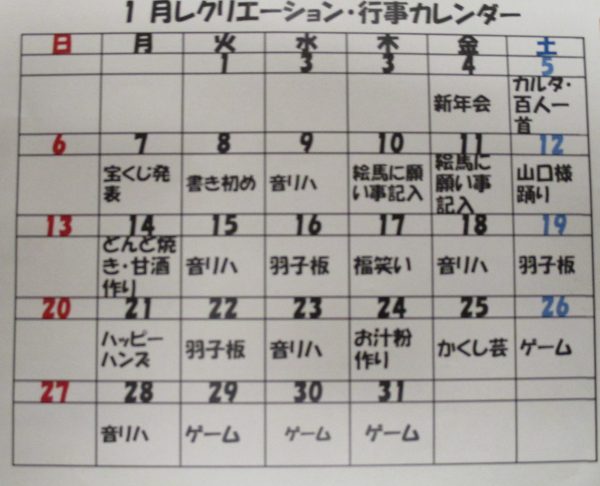 1 月レクリエーション・行事カレンダー
日 月 火 水 木 金 土
1 3 3 4 5
新年会 カルタ・百人一首
6 7 8 9 10 11 12
宝くじ発表 書き初め 音リハ 絵馬に願い事記入 絵馬に願い事記入 山口様踊り
13 14 15 16 17 18 19
どんど焼き・甘酒作り 音リハ 羽子板 福笑い 音リハ 羽子板
20 21 22 23 24 25 26
ハッピーハンズ 羽子板 音リハ お汁粉作り かくし芸 ゲーム
27 28 29 30 31
音リハ ゲーム ゲーム ゲーム